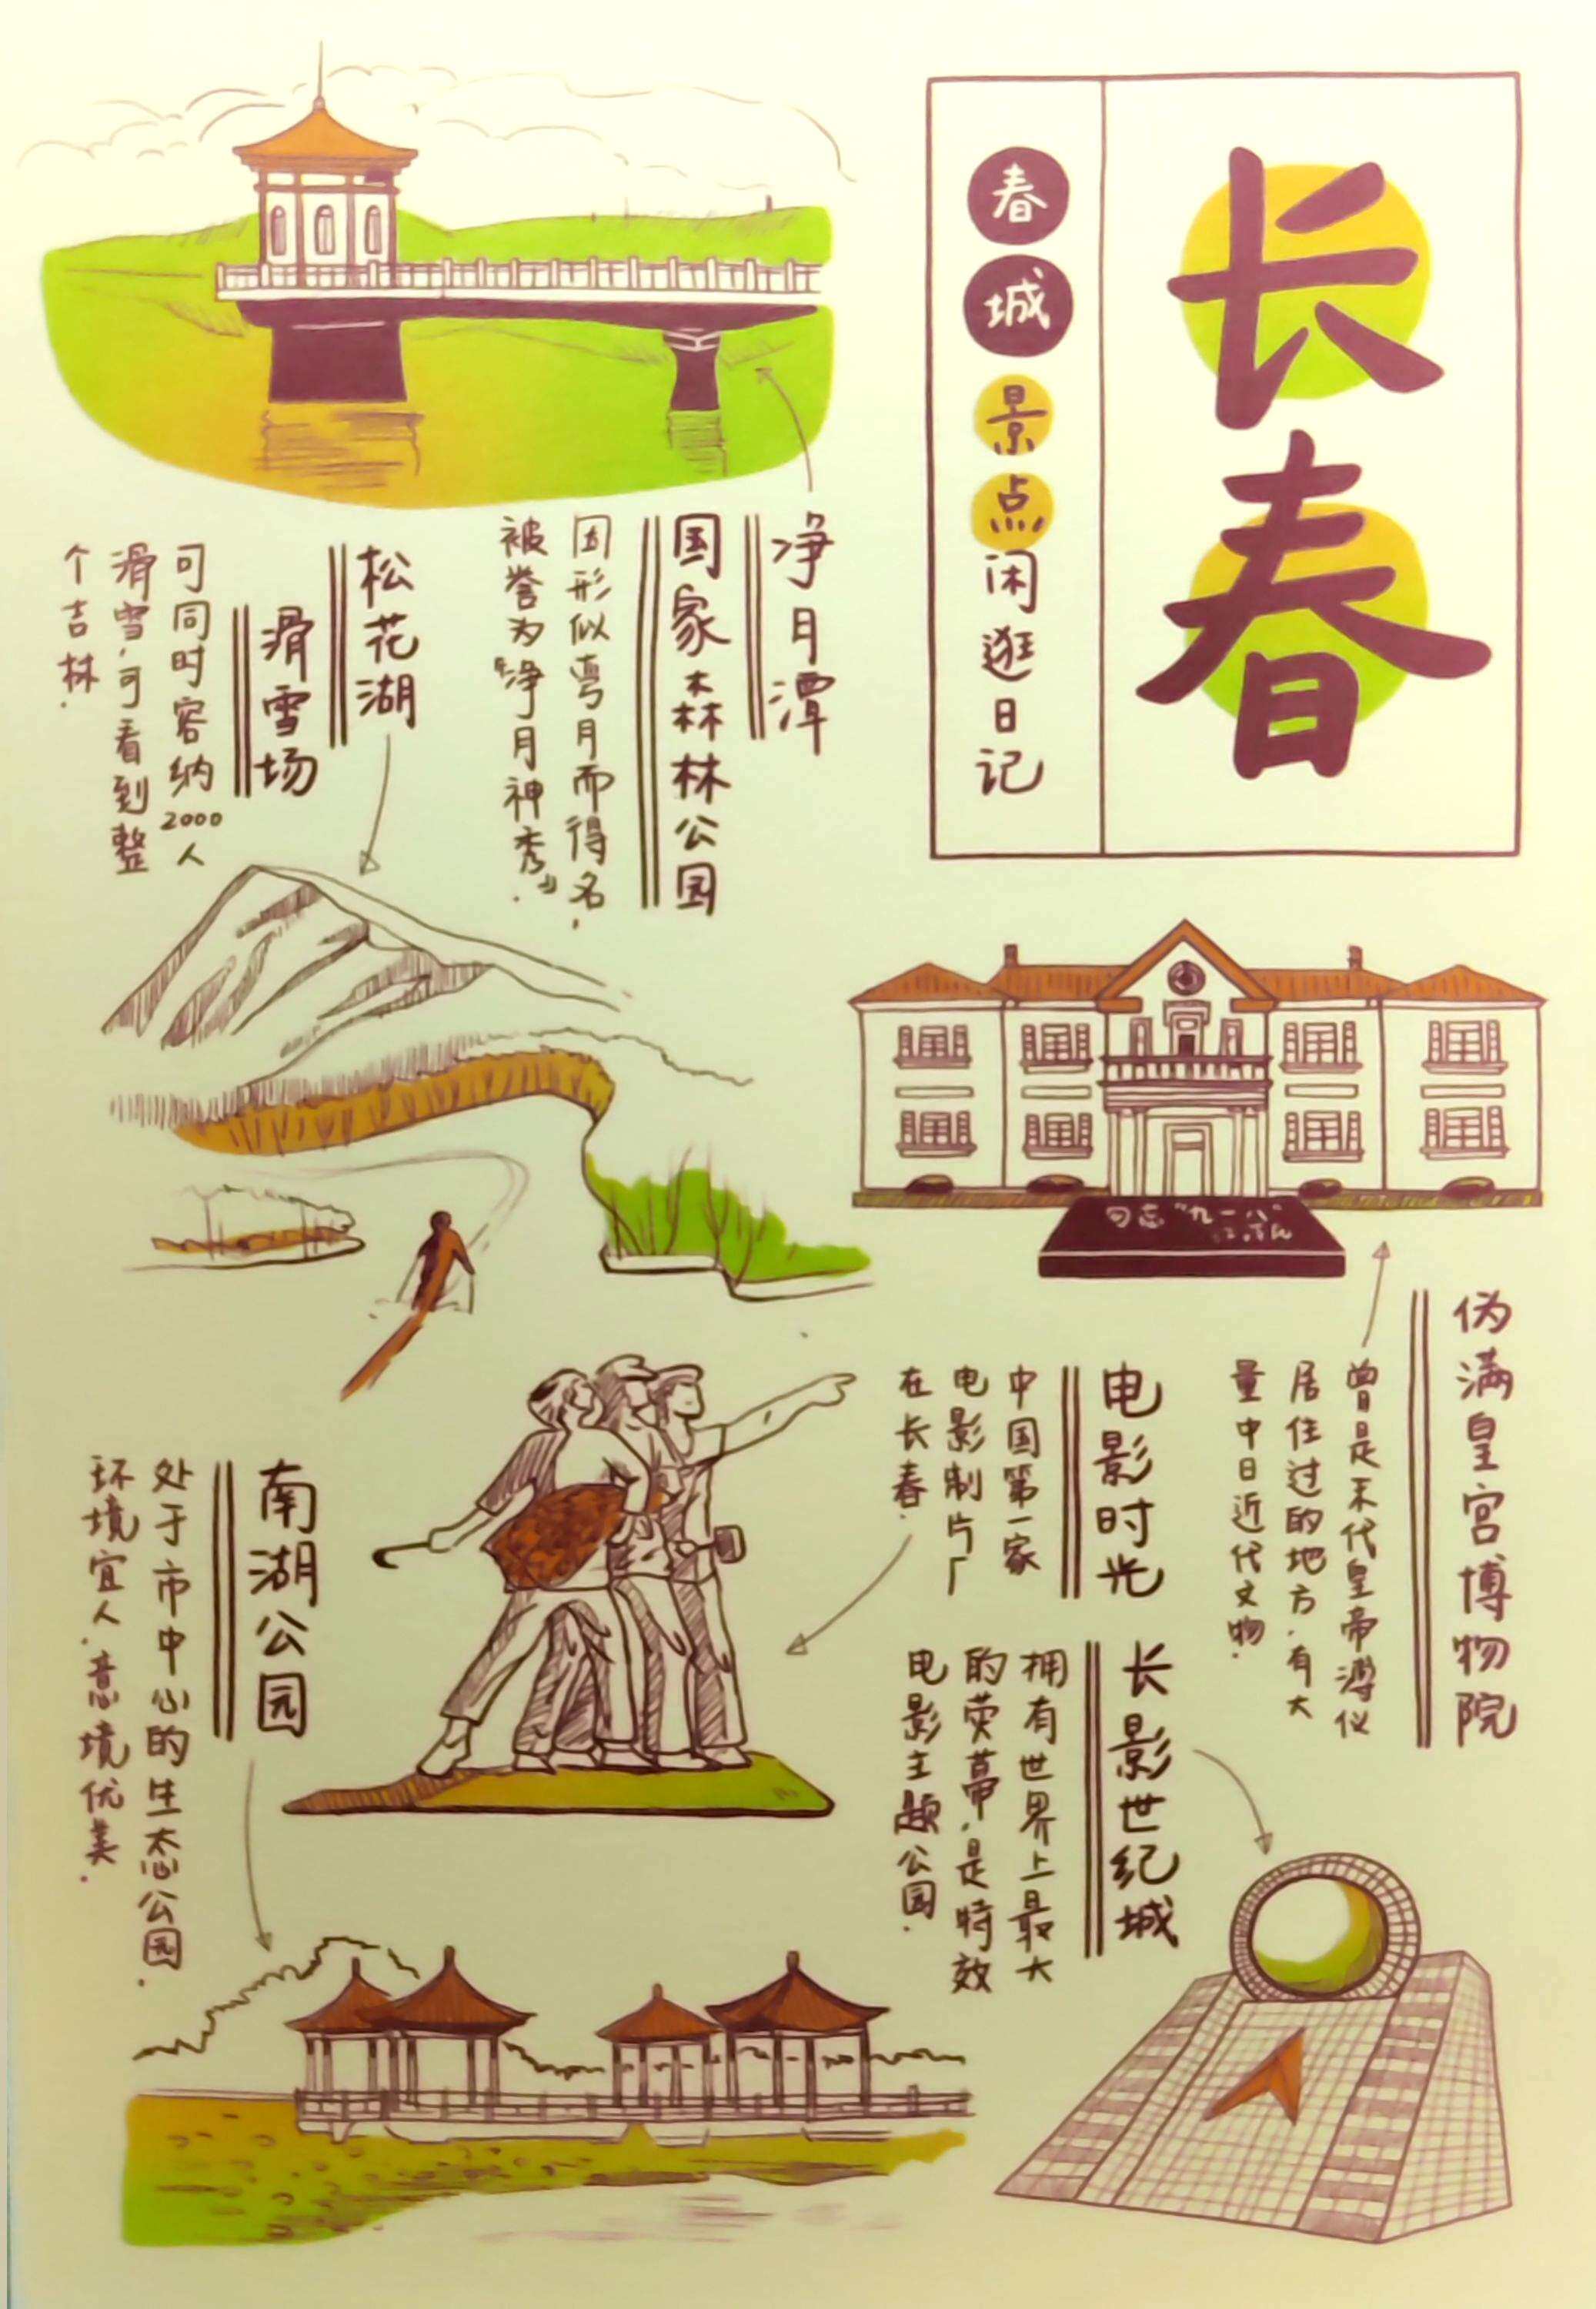 长春
春城景点闲逛日记
净月潭
国家森林公园
因形似弯月而得名,
被誉为“净月神秀”.
松花湖
滑雪场
可同时容纳2000人
滑雪,可看到整
个吉林.
勿忘“九一八”
江泽民
伪满皇宫博物院
曾是末代皇帝溥仪
居住过的地方.有大
量中日近代文物.
电影时光
中国第一家
电影制片厂
在长春.
长影世纪城
拥有世界上最大
的荧幕,是特效
电影主题公园.
南湖公园
处于市中心的生态公园.
环境宜人.意境优美.